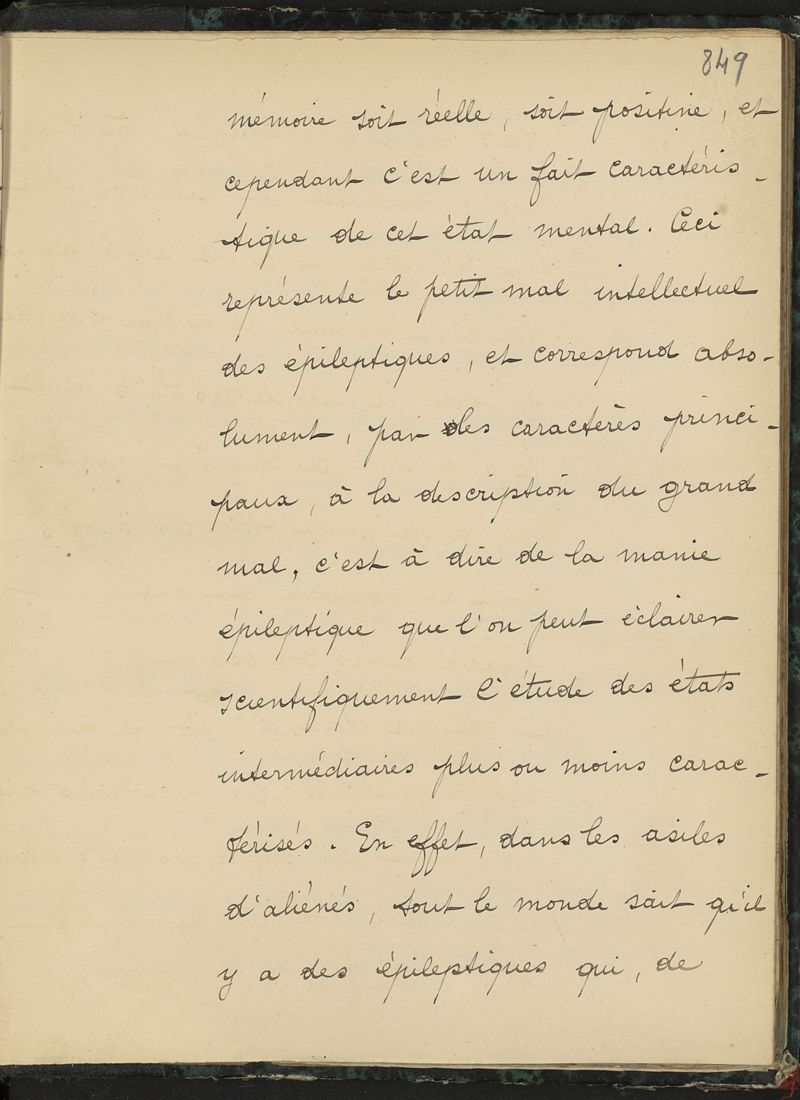 849
mémoire soit réelle, soit positive, et
cependant c'est un fait caractéris-
tique de cet état mental. Ceci
représente le petit mal intellectuel
des épileptiques, et correspond abso-
lument, par des caractères princi-
paux, à la description du grand
mal, c'est à dire de la manie
épileptique que l'on peut éclairer
scientifiquement l'étude des états
intermédiaires plus ou moins carac-
térisés. En effet, dans les asiles
d'aliénés, tout le monde sait qu'il
y a des épileptiques qui, de